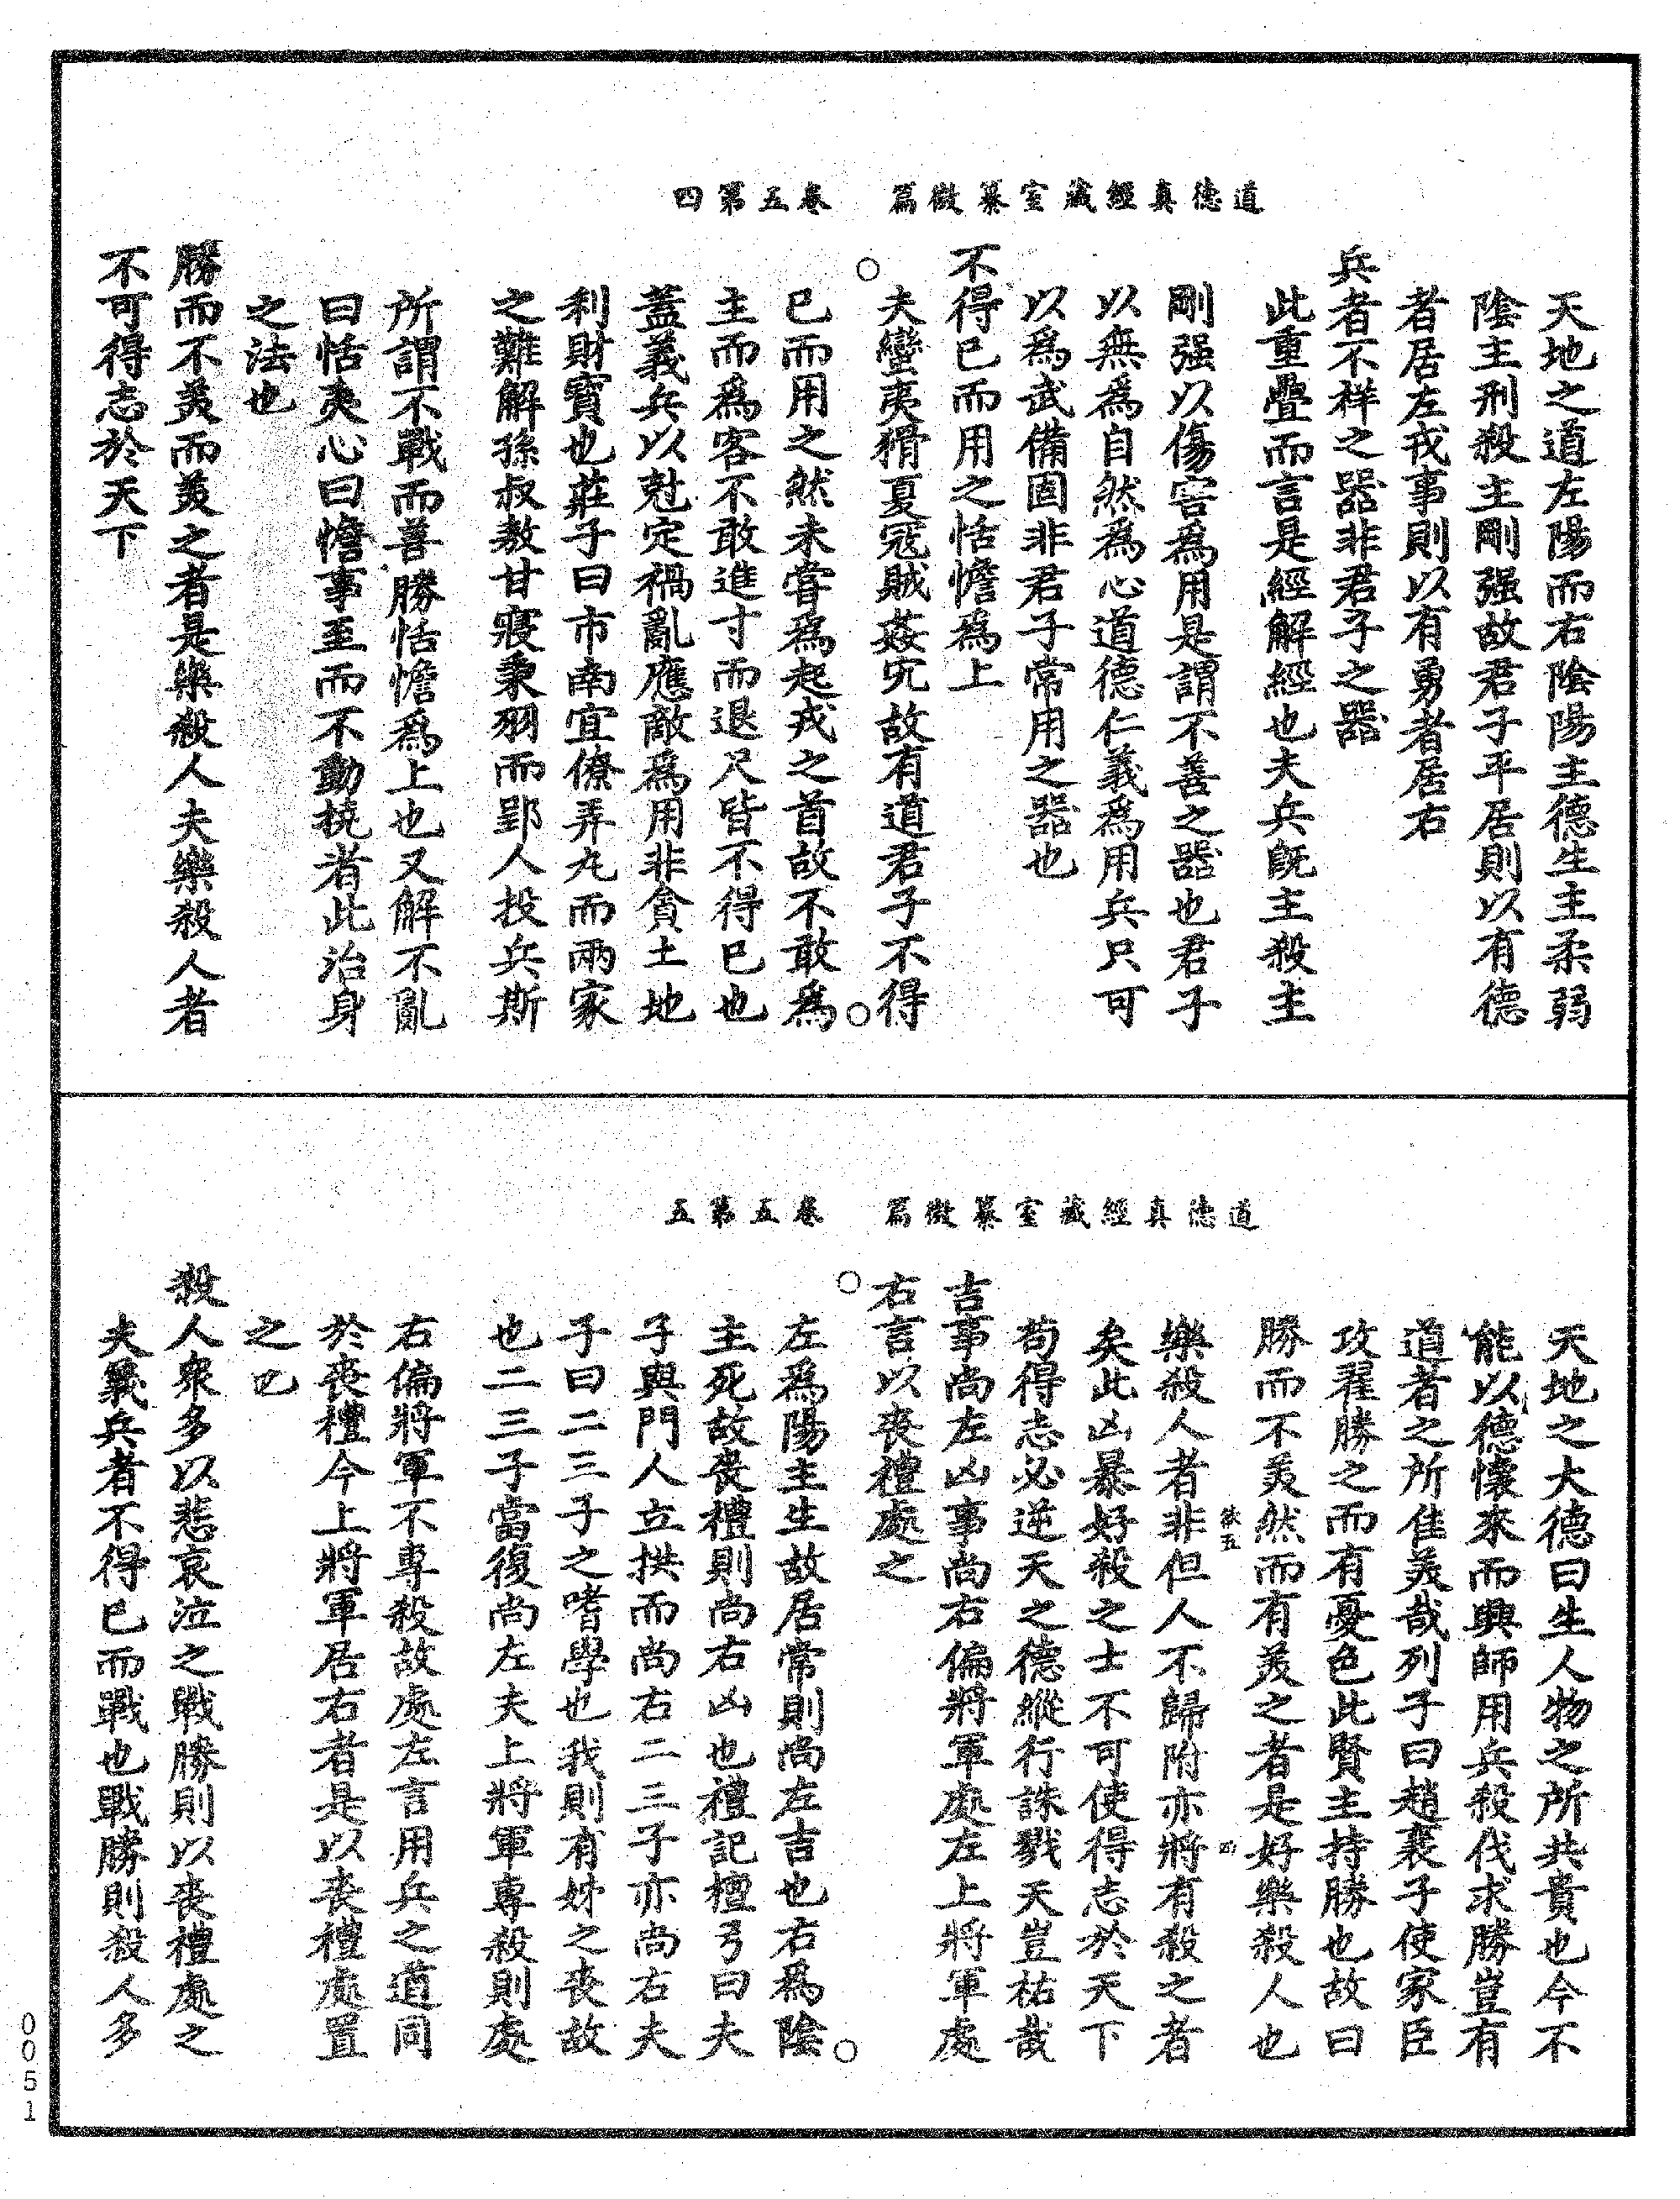 道德真經藏室纂微篇　卷五第四
天地之道左陽而右陰陽主德生主柔弱
陰主刑殺主剛强故君子平居則以有德
者居左戎事則以有勇者居右
兵者不祥之器非君子之器
此重疊而言是經解經也夫兵旣主殺主
剛强以傷害爲用是謂不善之器也君子
以無爲自然爲心道德仁義爲用兵只可
以爲武備固非君子常用之器也
不得已而用之恬憺爲上
夫蠻夷猾夏寇賊姦宄故有道君子不得
已而用之然未嘗爲起戎之首故不敢爲
主而爲客不敢進寸而退尺皆不得已也
蓋義兵以尅定禍亂應敵爲用非貪土地
利財寶也莊子曰市南宜僚弄丸而兩家
之難解孫叔敖甘寢秉羽而郢人投兵斯
所謂不戰而善勝恬憺爲上也又解不亂
曰恬夷心曰憺事至而不動撓者此治身
之法也
勝而不美而美之者是樂殺人夫樂殺人者
不可得志於天下
道德真經藏室纂微篇　卷五第五
天地之大德曰生人物之所共貴也今不
能以德懷來而興師用兵殺伐求勝豈有
道者之所佳美哉列子曰趙襄子使家臣
攻翟勝之而有憂色此賢主持勝也故曰
勝而不美然而有美之者是好樂殺人也
樂殺人者非但人不歸附亦將有殺之者
矣此凶暴好殺之士不可使得志於天下
苟得志必逆天之德縱行誅戮天豈祐哉
吉事尚左凶事尚右偏將軍處左上將軍處
右言以喪禮處之
左爲陽主生故居常則尚左吉也右爲陰
主死故喪禮則尚右凶也禮記檀弓曰夫
子與門人立拱而尚右二三子亦尚右夫
子曰二三子之嗜學也我則有姊之喪故
也二三子當復尚左夫上將軍專殺則處
右偏將軍不專殺故處左言用兵之道同
於喪禮今上將軍居右者是以喪禮處置
之也
殺人衆多以悲哀泣之戰勝則以喪禮處之
夫義兵者不得已而戰也戰勝則殺人多
0051